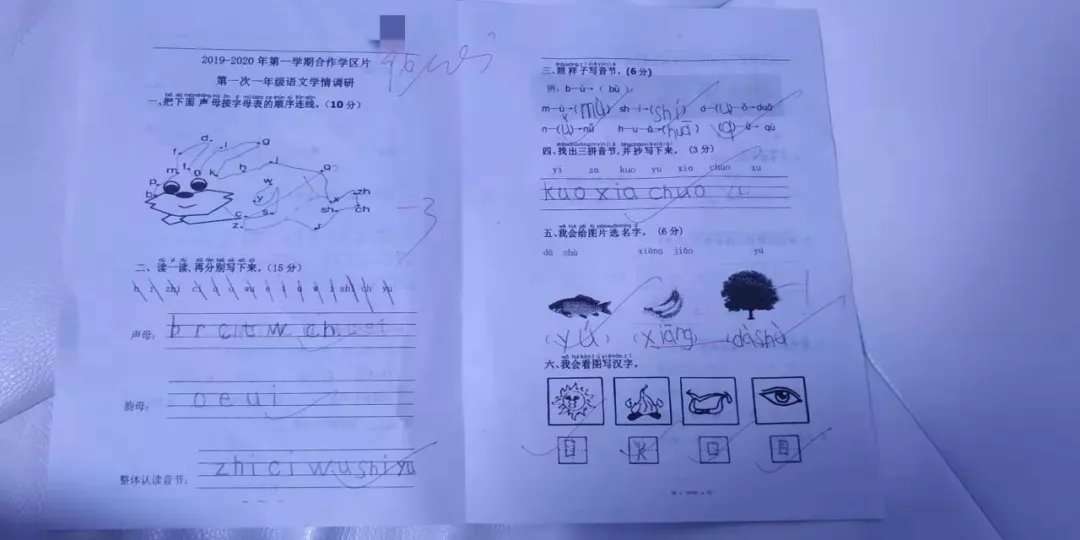 2019-2020年第一学期合作学区片
第一次一年级语文学情调研
一、把下面声母按字母表的顺序连线。(10分)
d
g
f
l
j
t
m
n
k
h
q
p
w
b
y
x
zh
c
s
sh
ch
z
r
-3
二、读一读,再分别写下来。(15分)
声母:
b r c t w ch
韵母:
o e u i
整体认读音节:
zhi ci wu shi yu
三、照样子写音节。(6分)
例:b—ù→( bù )
m—ù→(mù) sh—í→(shí) d—(u)—ǒ→duǒ
n—(ǚ)→nǚ h—u—ā→(huā) (q)—ù→qù
四、找出三拼音节,并抄写下来。(3分)
yi za kuo yu xia chuo xu
kuo xia chuo
五、我会给图片选名字。(6分)
dà shù xiāng jiāo yú
(yú) (xiāng) (dàshù)
六、我会看图写汉字。
日 火 口 目